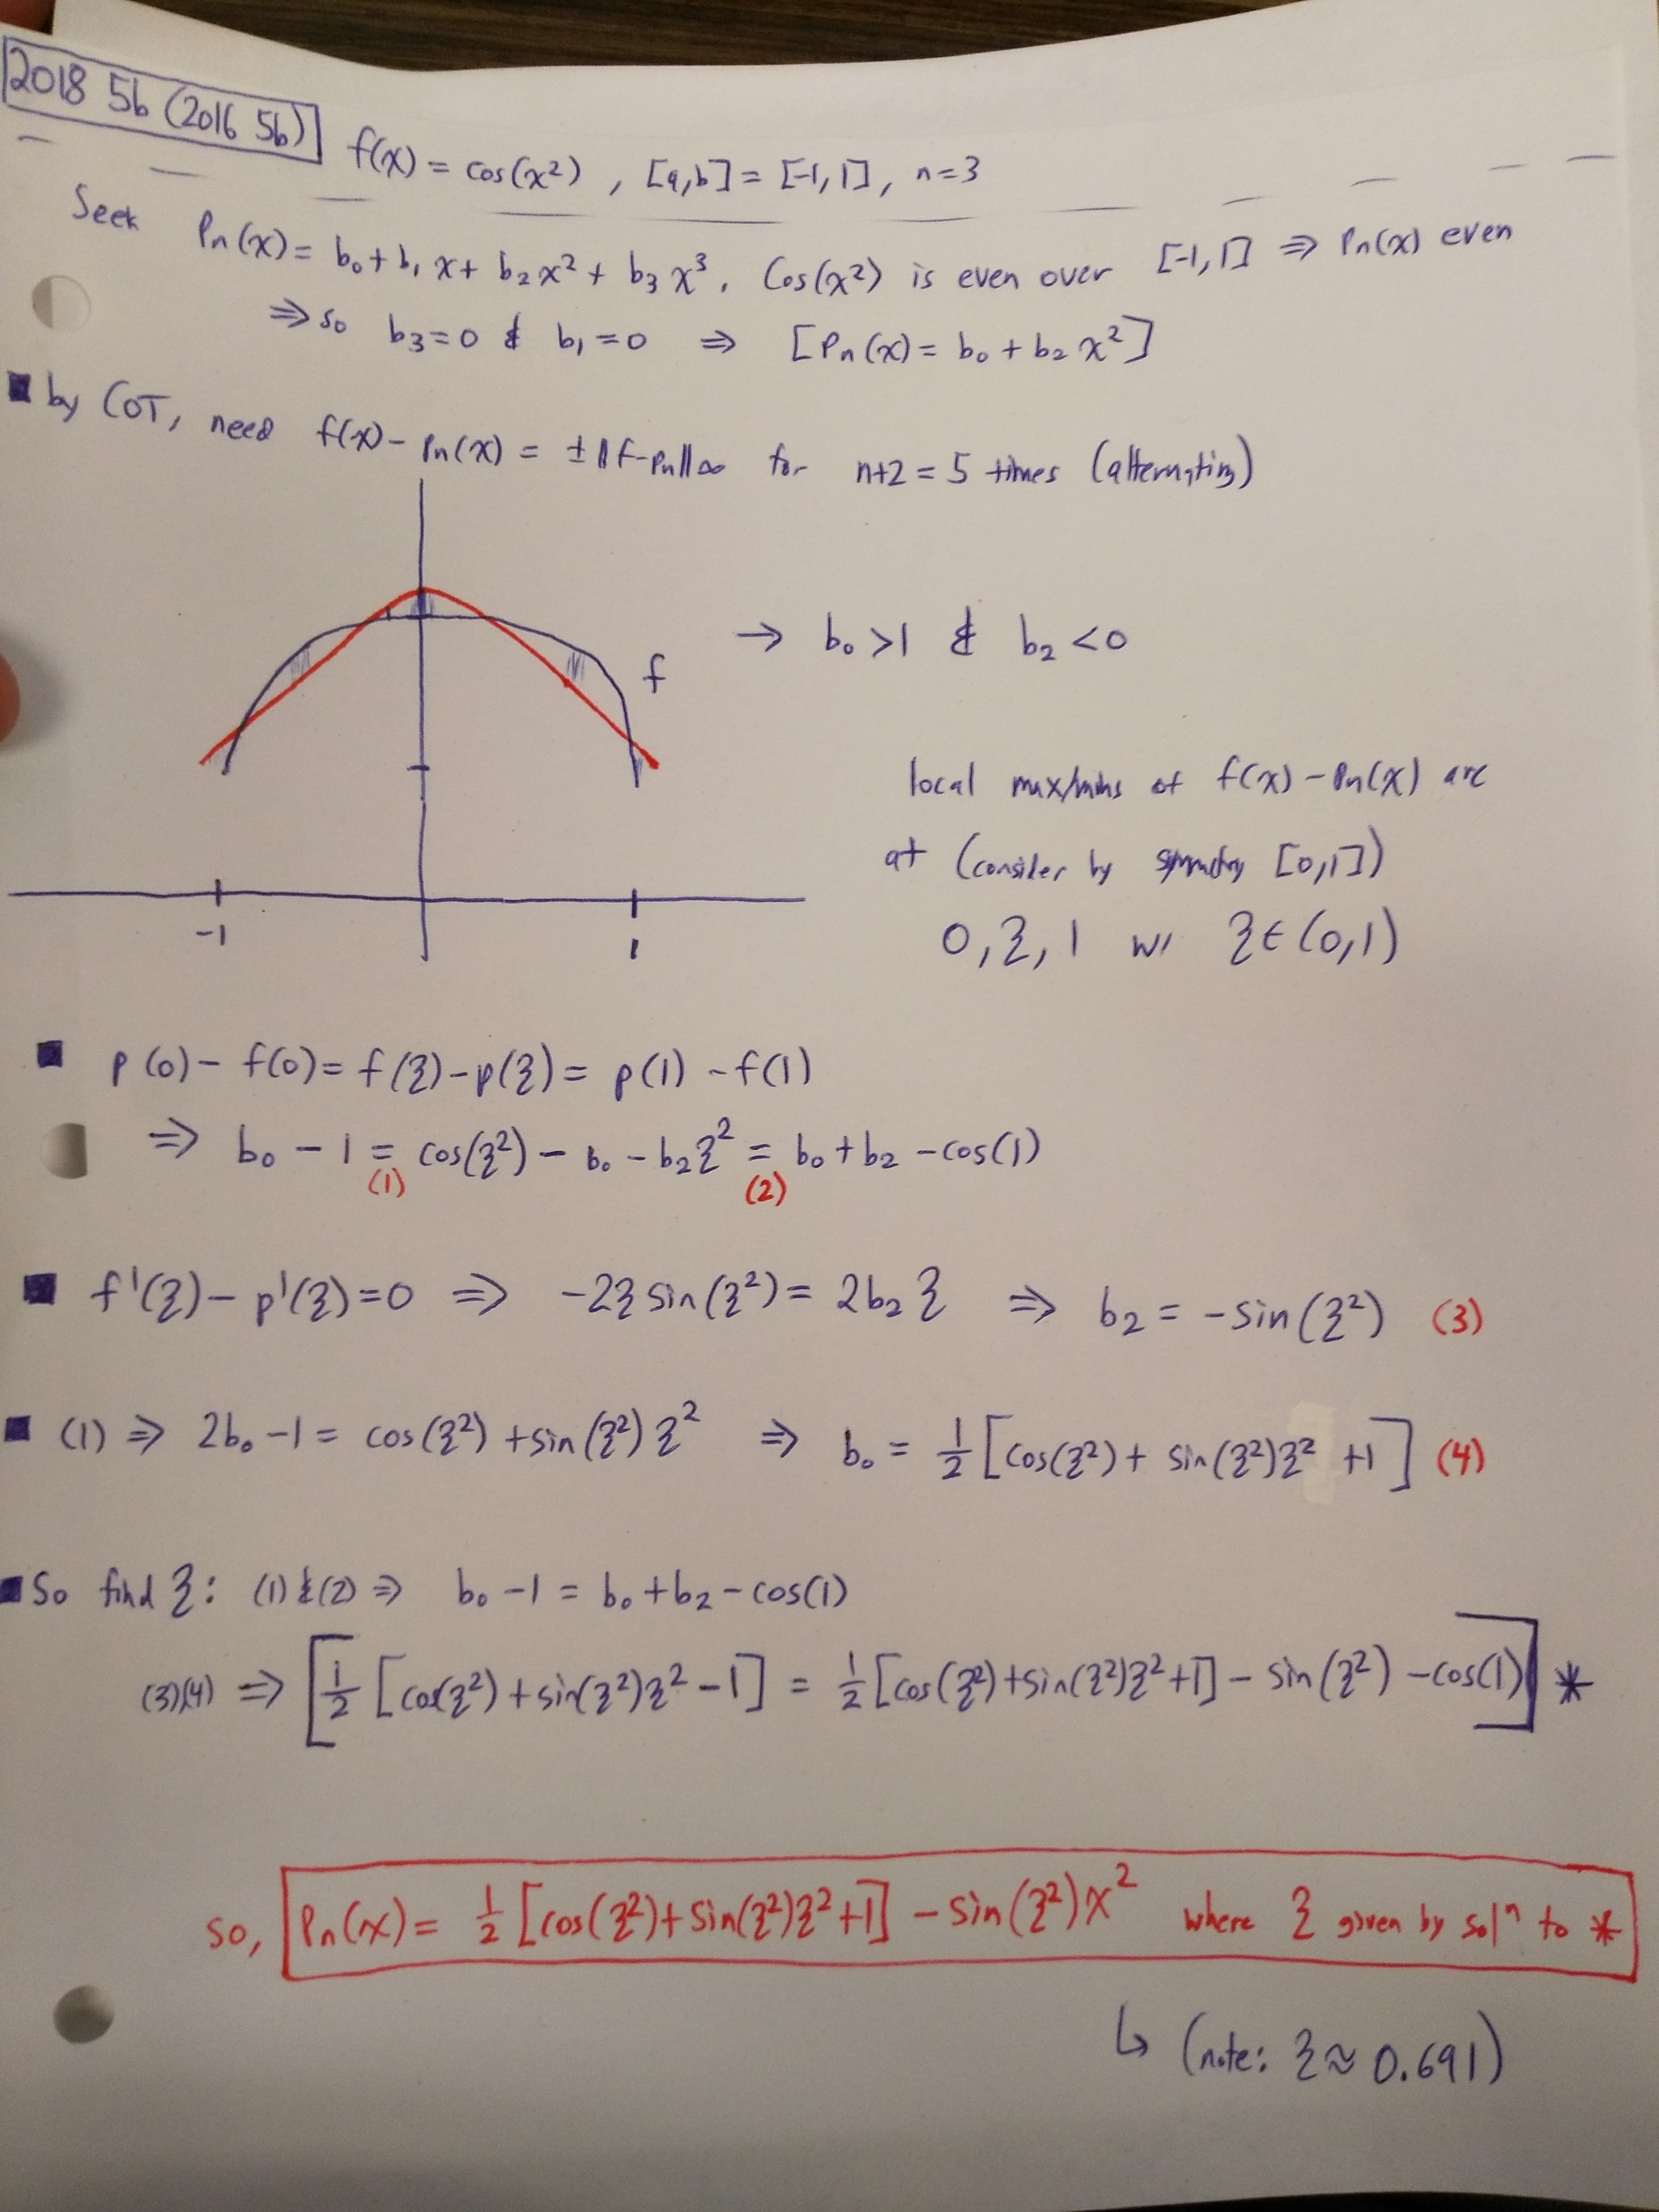 2018 5b (2016 5b)
f(x) = cos(x²), [a,b] = [-1,1], n=3
Seek Pn(x) = b₀ + b₁ x + b₂ x² + b₃ x³. Cos(x²) is even over [-1,1] ⇒ Pn(x) even
⇒ so b₃=0 & b₁=0 ⇒ [Pn(x) = b₀ + b₂ x²]
■ by COT, need f(x) - Pn(x) = ±‖f-Pn‖∞ for n+2 = 5 times (alternating)
f
→ b₀ >1 & b₂ <0
local max/mins of f(x) - Pn(x) are
at (consider by symmetry [0,1])
0, ξ, 1 w/ ξ ∈ (0,1)
-1 1
■ p(0) - f(0) = f(ξ) - p(ξ) = p(1) - f(1)
⇒ b₀ - 1 = cos(ξ²) - b₀ - b₂ξ² = b₀ + b₂ - cos(1)
(1) (2)
■ f'(ξ) - p'(ξ) = 0 ⇒ -2ξ sin(ξ²) = 2b₂ ξ ⇒ b₂ = -sin(ξ²) (3)
■ (1) ⇒ 2b₀ - 1 = cos(ξ²) + sin(ξ²) ξ² ⇒ b₀ = 1/2 [cos(ξ²) + sin(ξ²)ξ² +1] (4)
■ So find ξ: (1)&(2) ⇒ b₀ - 1 = b₀ + b₂ - cos(1)
(3)(4) ⇒ [1/2 [cos(ξ²) + sin(ξ²)ξ² - 1] = 1/2 [cos(ξ²) + sin(ξ²)ξ² + 1] - sin(ξ²) - cos(1)] *
so, Pn(x) = 1/2 [cos(ξ²) + sin(ξ²)ξ² + 1] - sin(ξ²) x² where ξ given by solⁿ to *
↳ (note: ξ ≈ 0.691)